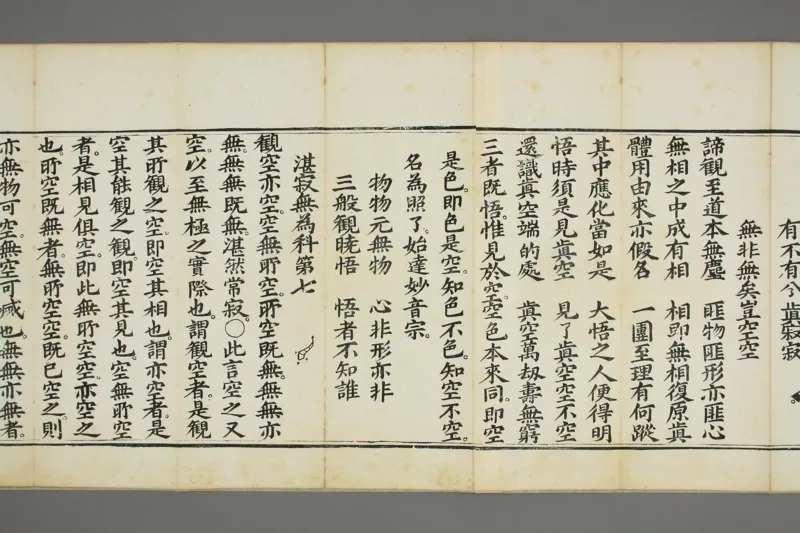 有不有兮眞寂寂
無非無矣豈空空
諦觀至道本無塵　匪物匪形亦匪心
無相之中成有相　相即無相復原眞
體用由來亦假名　一團至理有何蹤
其中應化當如是　大悟之人便得明
悟時須是見眞空　見了眞空空不空
還識眞空端的處　眞空萬劫壽無窮
三者既悟。惟見於空。空色本來同。即空
是色。即色是空。知色不色。知空不空。
名為照了。始達妙音宗。
物物元無物　心非形亦非
三般觀曉悟　悟者不知誰
湛寂無為科第七
觀空亦空。空無所空。所空既無。無無亦
無。無無既無。湛然常寂。〇此言空之又
空。以至無極之實際也。謂觀空者。是觀
其所觀之空。即空其相也。謂亦空者。是
空其能觀之觀。即空其見也。空無所空
者。是相見俱空。即此無所空空。亦空之
也。所空既無者。無所空空。既已空之。則
亦無物可空。無空可喊也。無無亦無者。